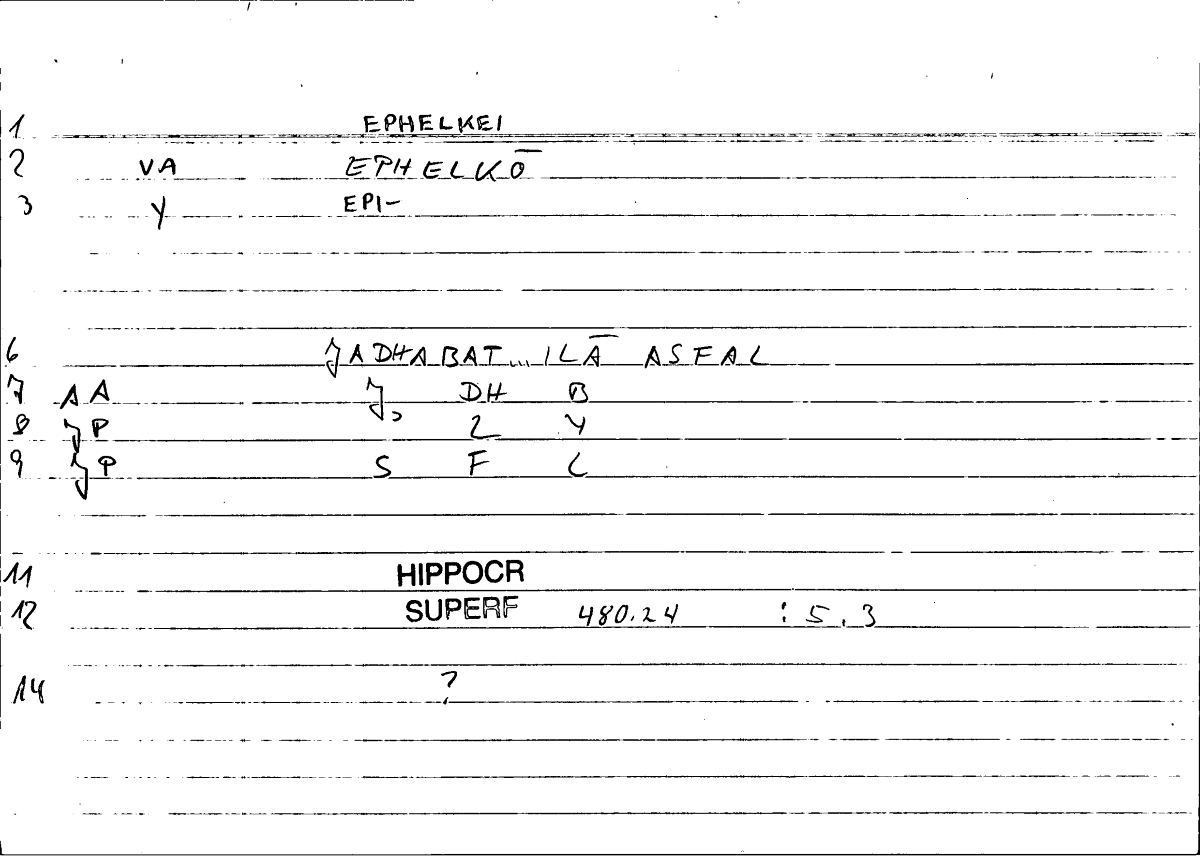 1 EPHELKEI
2 VA EPHELKŌ
3 Y EPI-
6 JADHABAT...ILĀ ASFAL
7 AA J, DH B
8 JP 2 Y
9 JP S F L
11 HIPPOCR
12 SUPERF 480.24 : 5.3
14 ?